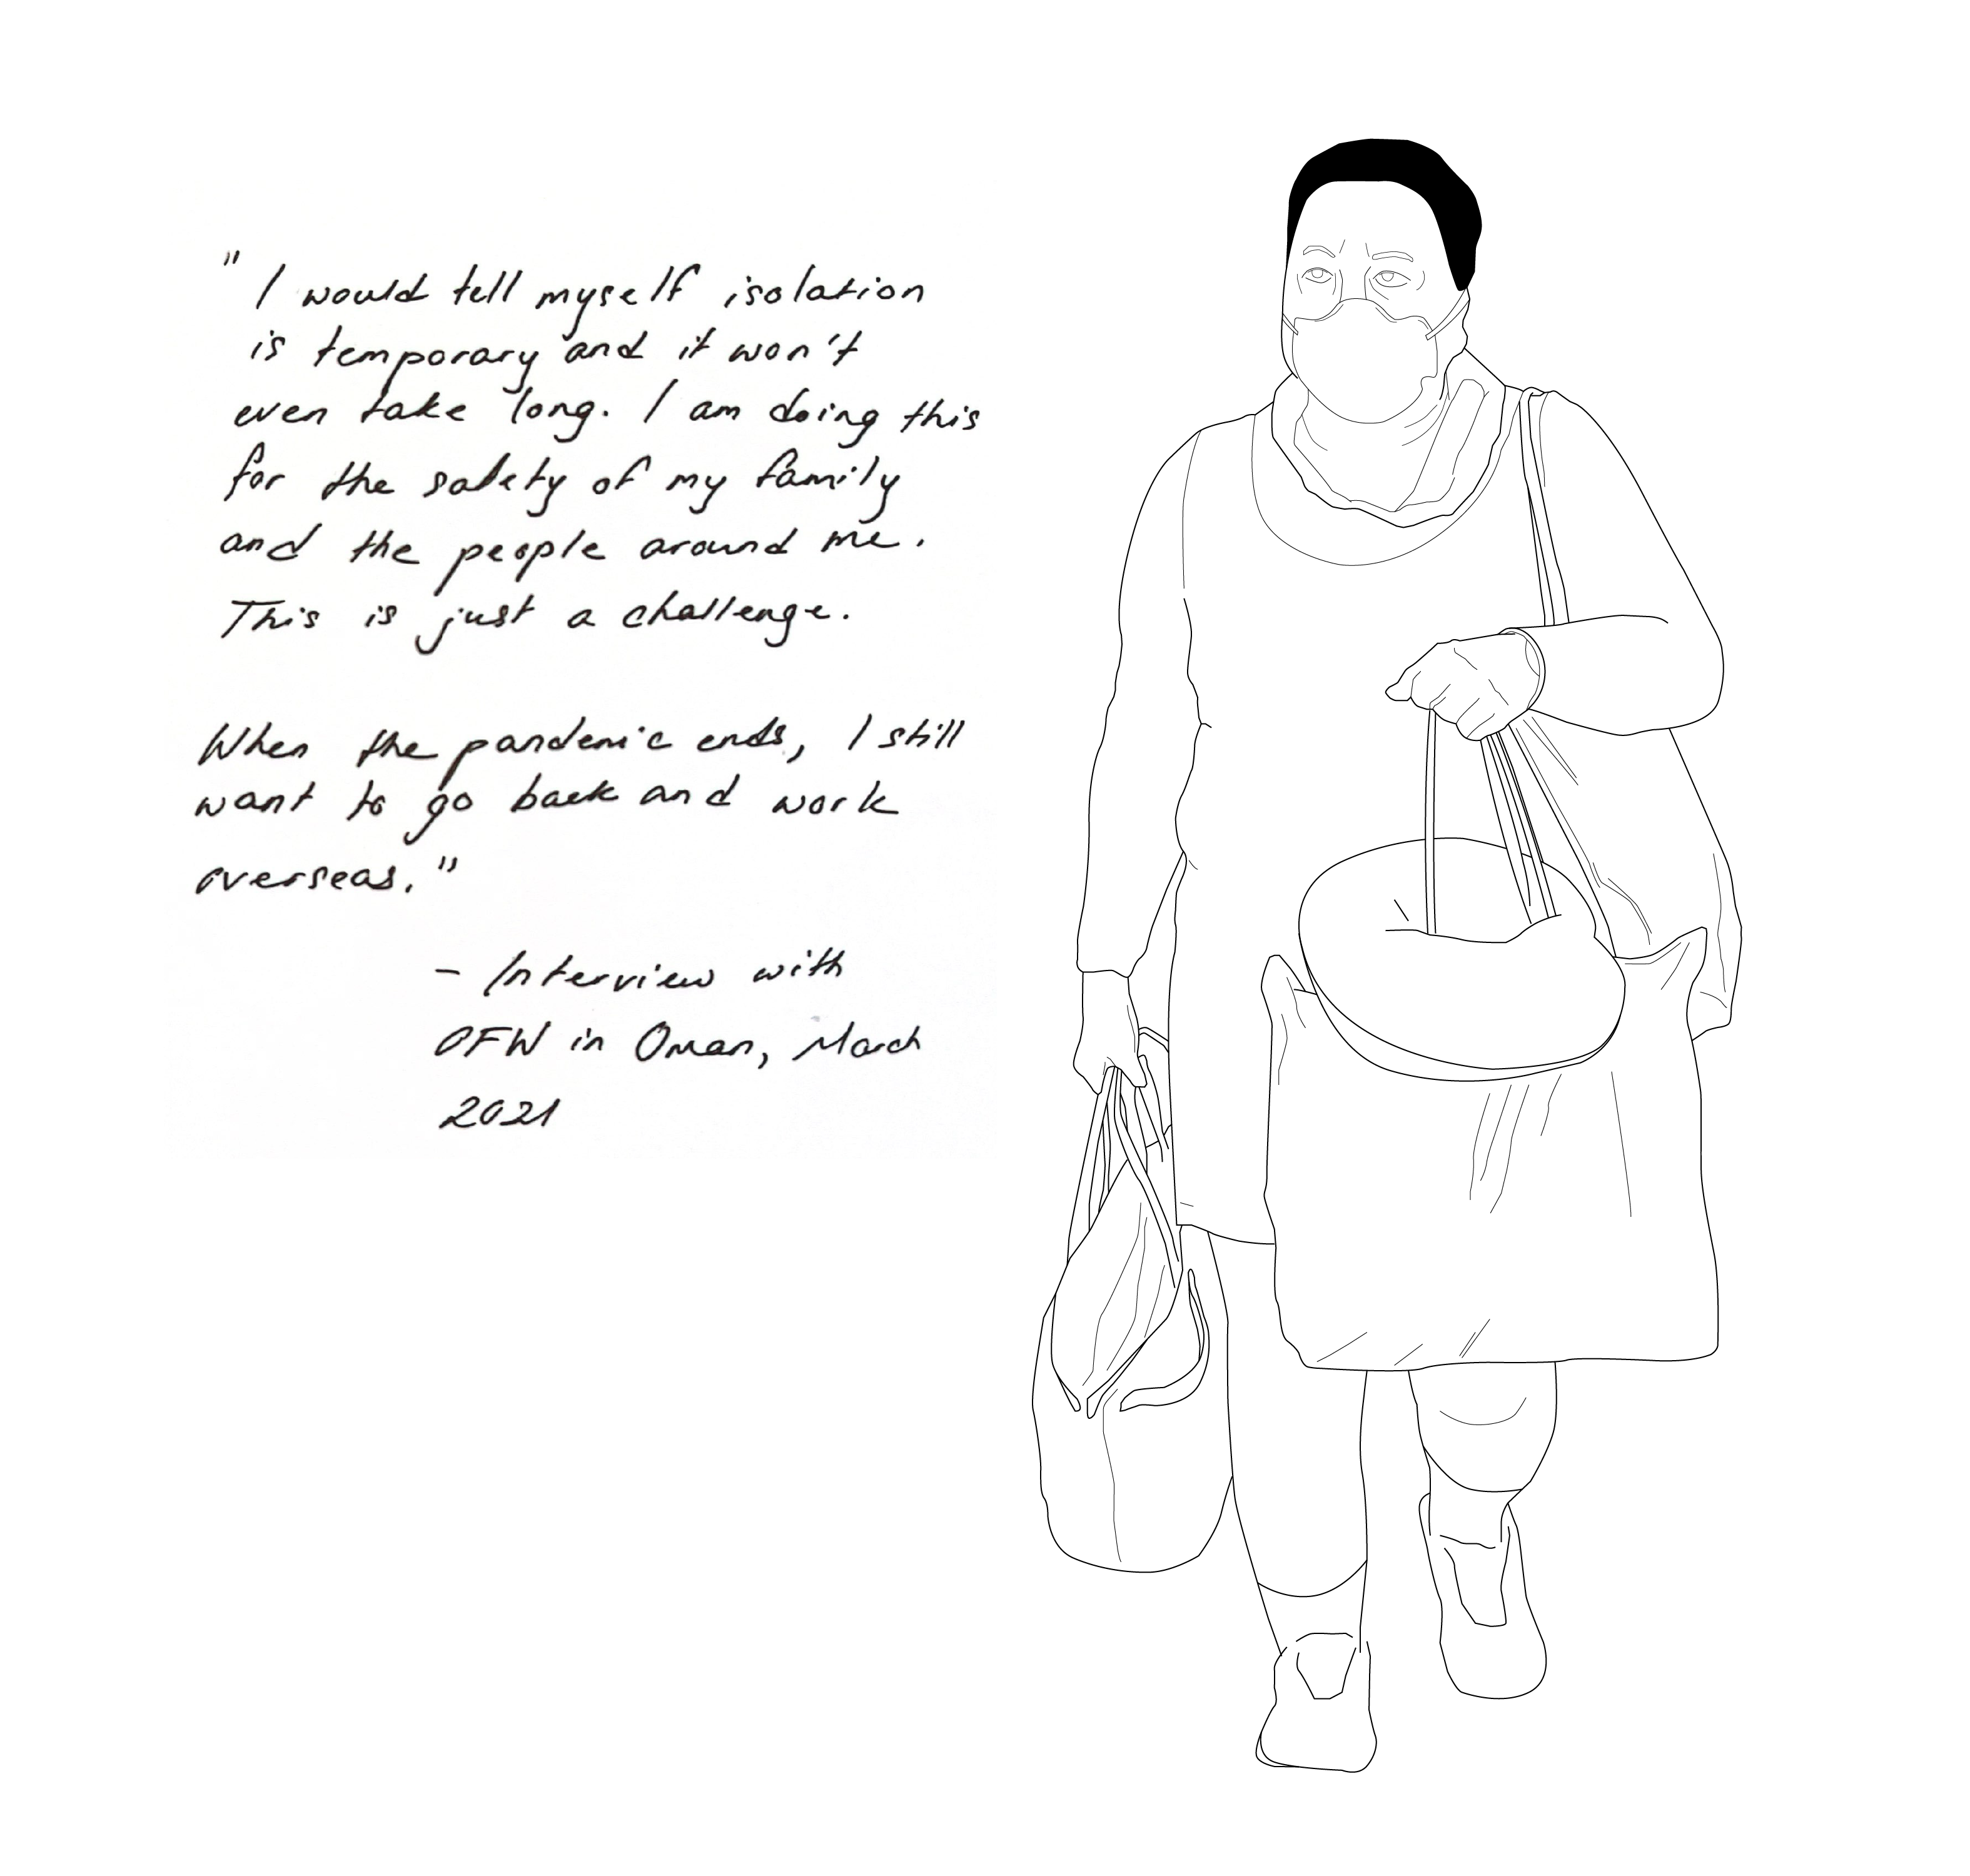 "I would tell myself isolation
is temporary and it won't
even take long. I am doing this
for the safety of my family
and the people around me.
This is just a challenge.
When the pandemic ends, I still
want to go back and work
overseas."
- Interview with
OFW in Oman, March
2021